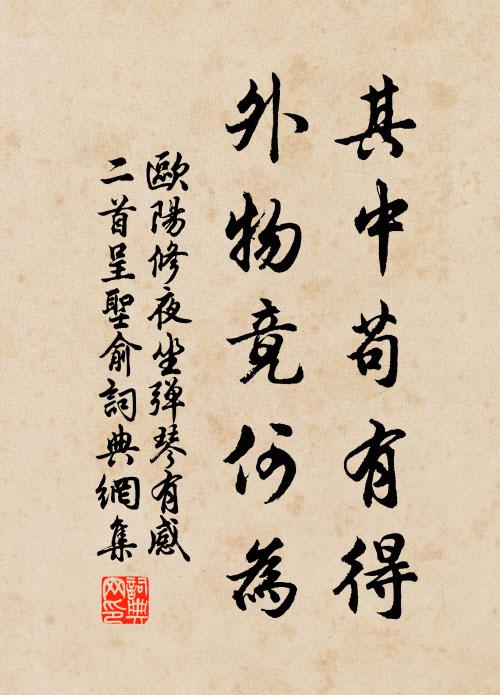 其中苟有得
外物竟何為
歐陽修夜坐弾琴有感
二首呈聖俞詞典網集
詞典
网印